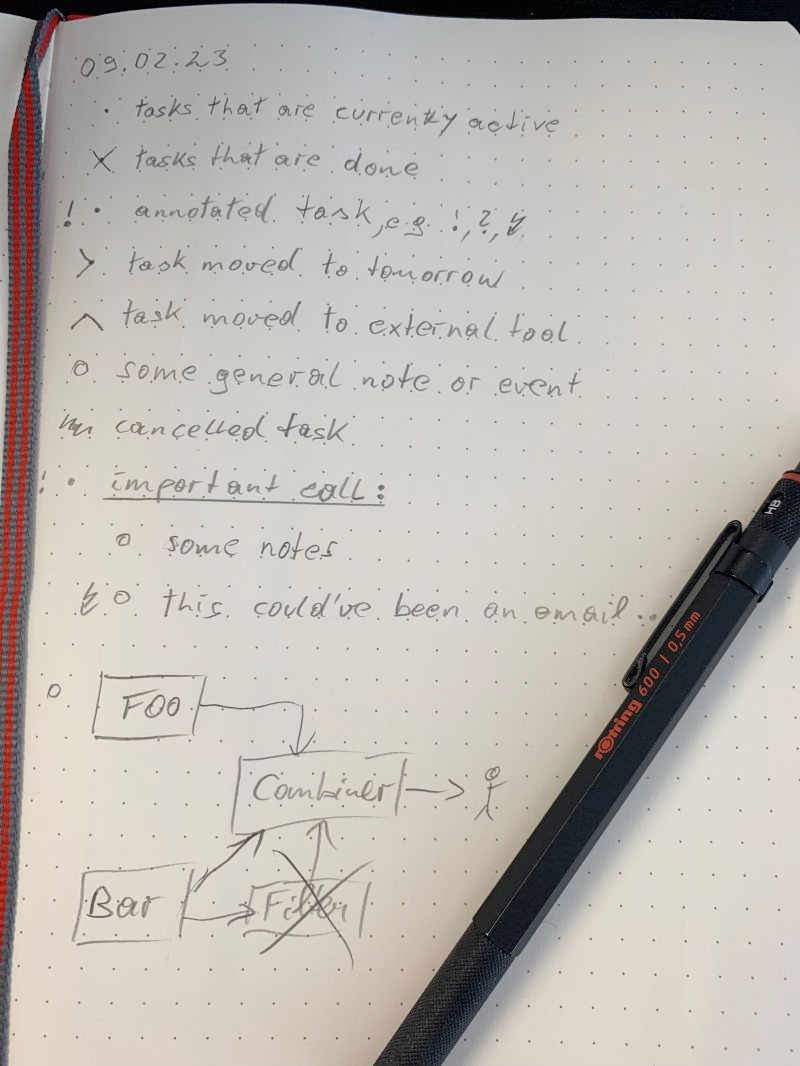 09.02.23
· tasks that are currently active
X tasks that are done
! · annotated task, e.g. !, ?, ↯
> task moved to tomorrow
^ task moved to external tool
o some general note or event
cancelled task
! · important call:
o some notes
↯ o this could've been an email..
o FOO
Combiner
Bar Filter
HB
rOtring 600 | 0,5 mm